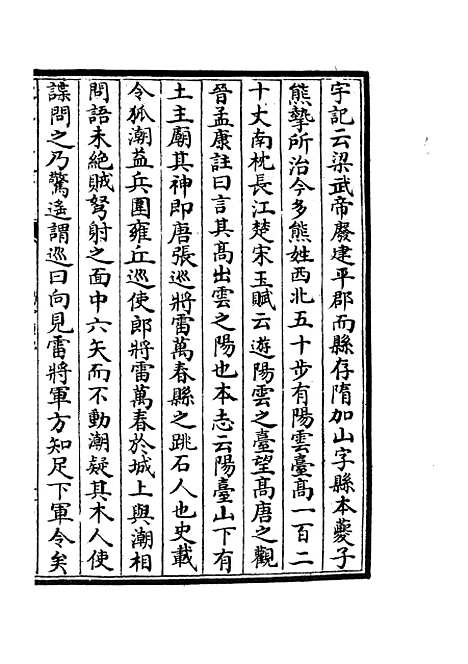 宇記云梁武帝廢建平郡而縣存隋加山字縣本夔子
熊摯所治今多熊姓西北五十步有陽雲臺髙一百二
十丈南枕長江楚宋玉賦云遊陽雲之臺望髙唐之觀
晉孟康註曰言其髙出雲之陽也本志云陽臺山下有
土主廟其神即唐張巡將雷萬春縣之跳石人也史載
令狐潮益兵圍雍丘巡使郎將雷萬春於城上與潮相
問語未絶賊弩射之面中六矢而不動潮疑其木人使
諜問之乃驚遙謂巡曰向見雷將軍方知足下軍令矣